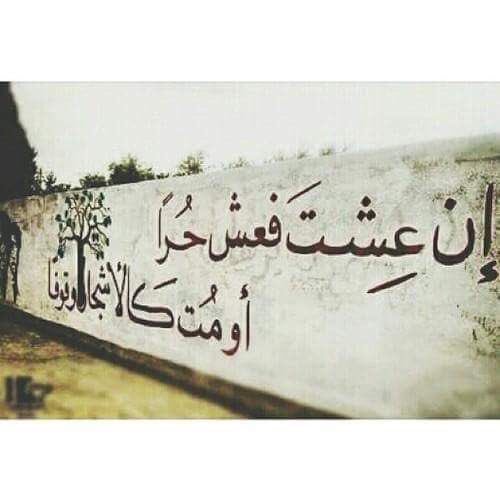 إن عِشتَ فعش حُرًا
أو مُت كالأشجار وقوفا